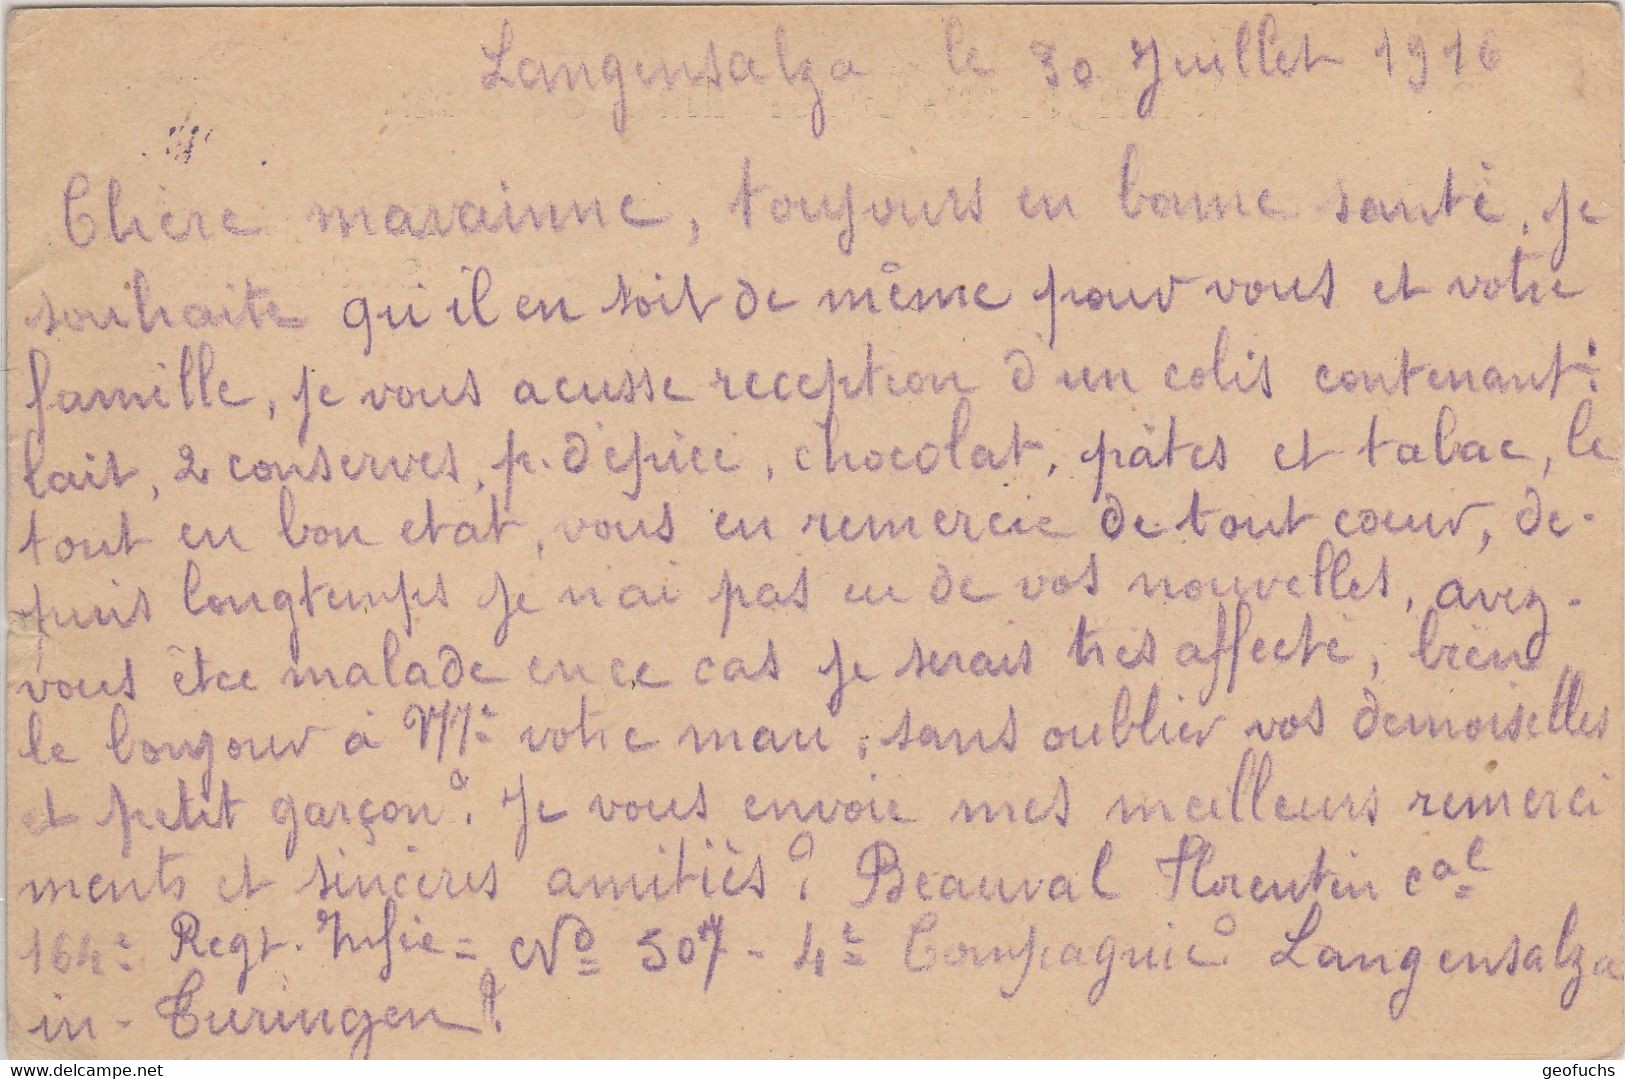 Langensalza - le 30 Juillet 1916
Chère marainne, toujours en bonne santé, je
souhaite qu'il en soit de même pour vous et votre
famille, je vous acusse reception d'un colis contenant:
lait, 2 conserves, p. d'épice, chocolat, pâtes et tabac, le
tout en bon etat, vous en remercie de tout coeur, de-
puis longtemps je n'ai pas eu de vos nouvelles, avez-
vous êtee malade en ce cas je serais très affecté, bien
le bonjour à Mr votre mari, sans oublier vos demoiselles
et petit garçon. Je vous envoie mes meilleurs remerci
ments et sincères amitiès. Beauval Florentin cal
164e Regt. Infie = No 507 - 4e Compagnie Langensalza
in - Turingen.
delcampe.net
geofuchs